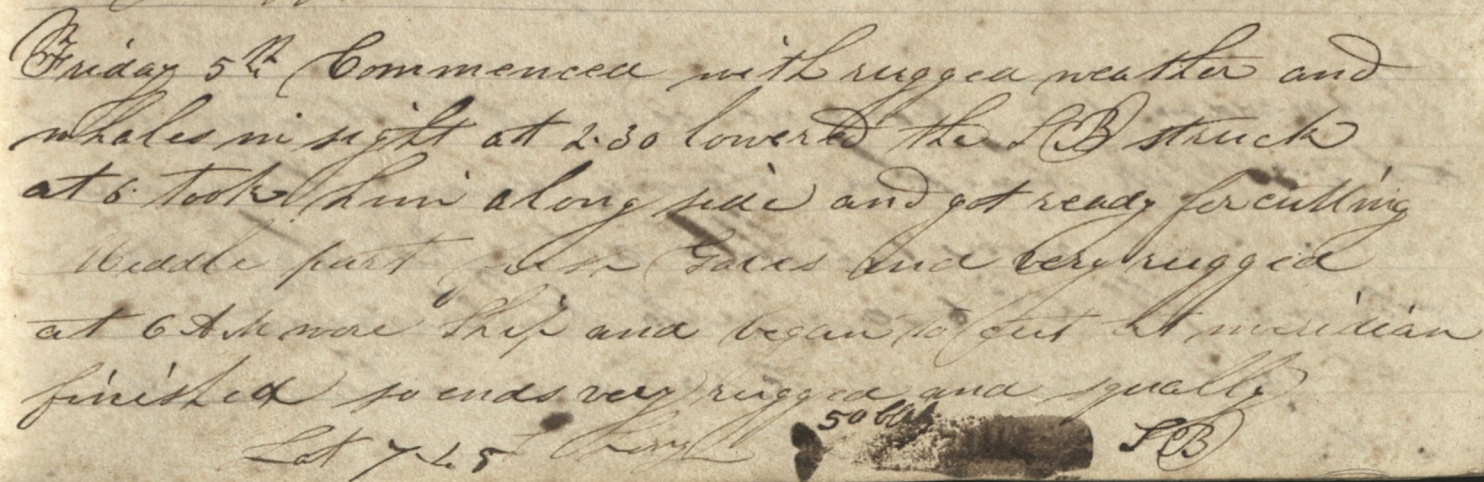 Friday 5th Commenced with rugged weather and
whales in sight at 2.30 lowered the SB struck
at 6 took him along side and got ready for cutting
Middle part fresh Gales and very rugged
at 6 AM wore Ship and began to cut at meridian
finished so ends very rugged and squally
50 bbls
Lat Long SB